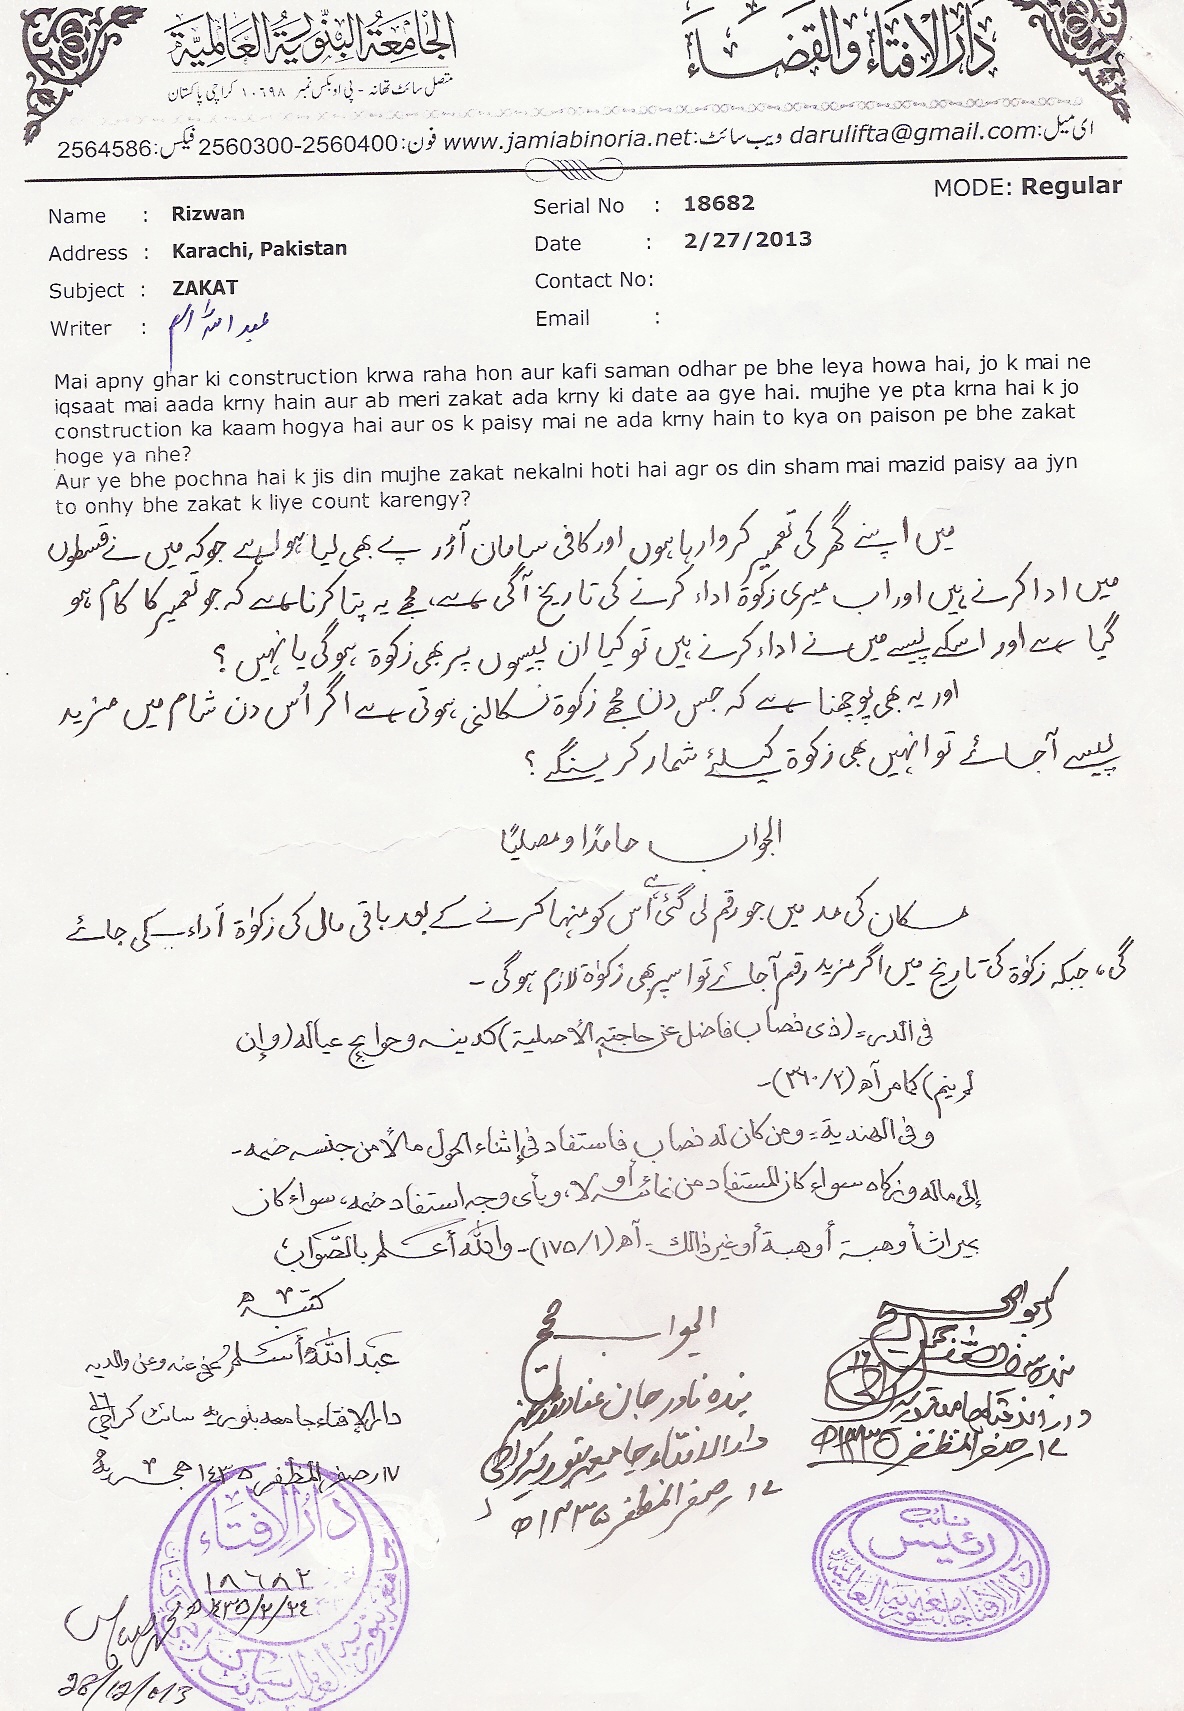 الجامعة البنورية العالمية
دار الافتاء والقضاء
متصل سائٹ تھانہ - پی او بکس نمبر ۱۰۶۹۸ کراچی پاکستان
ای میل: darulifta@gmail.com ویب سائٹ: www.jamiabinoria.net فون: 2560300-2560400 فیکس: 2564586
MODE: Regular
Name : Rizwan
Serial No : 18682
Address : Karachi, Pakistan
Date : 2/27/2013
Subject : ZAKAT
Contact No:
Writer : عبد اللہ اسلم
Email :
Mai apny ghar ki construction krwa raha hon aur kafi saman odhar pe bhe leya howa hai, jo k mai ne
iqsaat mai aada krny hain aur ab meri zakat ada krny ki date aa gye hai. mujhe ye pta krna hai k jo
construction ka kaam hogya hai aur os k paisy mai ne ada krny hain to kya on paison pe bhe zakat
hoge ya nhe?
Aur ye bhe pochna hai k jis din mujhe zakat nekalni hoti hai agr os din sham mai mazid paisy aa jyn
to onhy bhe zakat k liye count karengy?
میں اپنے گھر کی تعمیر کروا رہا ہوں اور کافی سامان آڈر پے بھی لیا ہوا ہے جو کہ میں نے قسطوں
میں ادا کرنے ہیں اور اب میری زکوۃ اداء کرنے کی تاریخ آگی ہے، مجھے یہ پتا کرنا ہے کہ جو تعمیر کا کام ہو
گیا ہے اور اسکے پیسے میں نے اداء کرنے ہیں تو کیا ان پیسوں پر بھی زکوۃ ہوگی یا نہیں ؟
اور یہ بھی پوچھنا ہے کہ جس دن مجھے زکوۃ نکالنی ہوتی ہے اگر اُس دن شام میں مزید
پیسے آجائے تو انہیں بھی زکوۃ کیلئے شمار کرینگے ؟
الجواب حامدًا ومصلیًا
مکان کی مد میں جو رقم لی گئی ہے اُس کو منہا کرنے کے بعد باقی مال کی زکوٰۃ اَداء کی جائے
گی، جبکہ زکوٰۃ کی تاریخ میں اگر مزید رقم آجائے تو اسپر بھی زکوٰۃ لازم ہوگی -
فی الدر: (ذی نصاب فاضل عن حاجتہ الأصلیة) کدینہ وحوائج عیالہ (وإن
لم ینم) کما مر آھ (۲/۳۶۰) -
وفی الھندیة: ومن کان لہ نصاب فاستفاد فی إثناء الحول مالًا من جنسہ ضمہ -
إلی مالہ وزکاہ سواء کان المستفاد من نمائہ أو لا، وبأی وجہ استفاد ضمہ، سواء کان
بمیراث أو ھبة أو ھبة أو غیر ذالک آھ (۱/۱۷۵) - واللہ أعلم بالصواب
کتبہ
عبد اللہ أسلم عفی عنہ وعن والدیہ
دار الإفتاء جامعہ بنوریہ سائٹ کراچی ۱۶
۱۷ صفر المظفر ۱۴۳۵ ھجریة
الجواب صحیح
بندہ خاور جان
دار الافتاء جامعہ بنوریہ کراچی
۱۷ صفر المظفر ۱۴۳۵ھ
الجواب صحیح
۱۷ صفر المظفر ۱۴۳۵ھ
دار الافتاء
۱۸۶۸۲
۱۴۳۵/۲/۲۴ھ
28/12/013
نائب
رئیس
دار الافتاء جامعہ بنوریہ العالمیہ